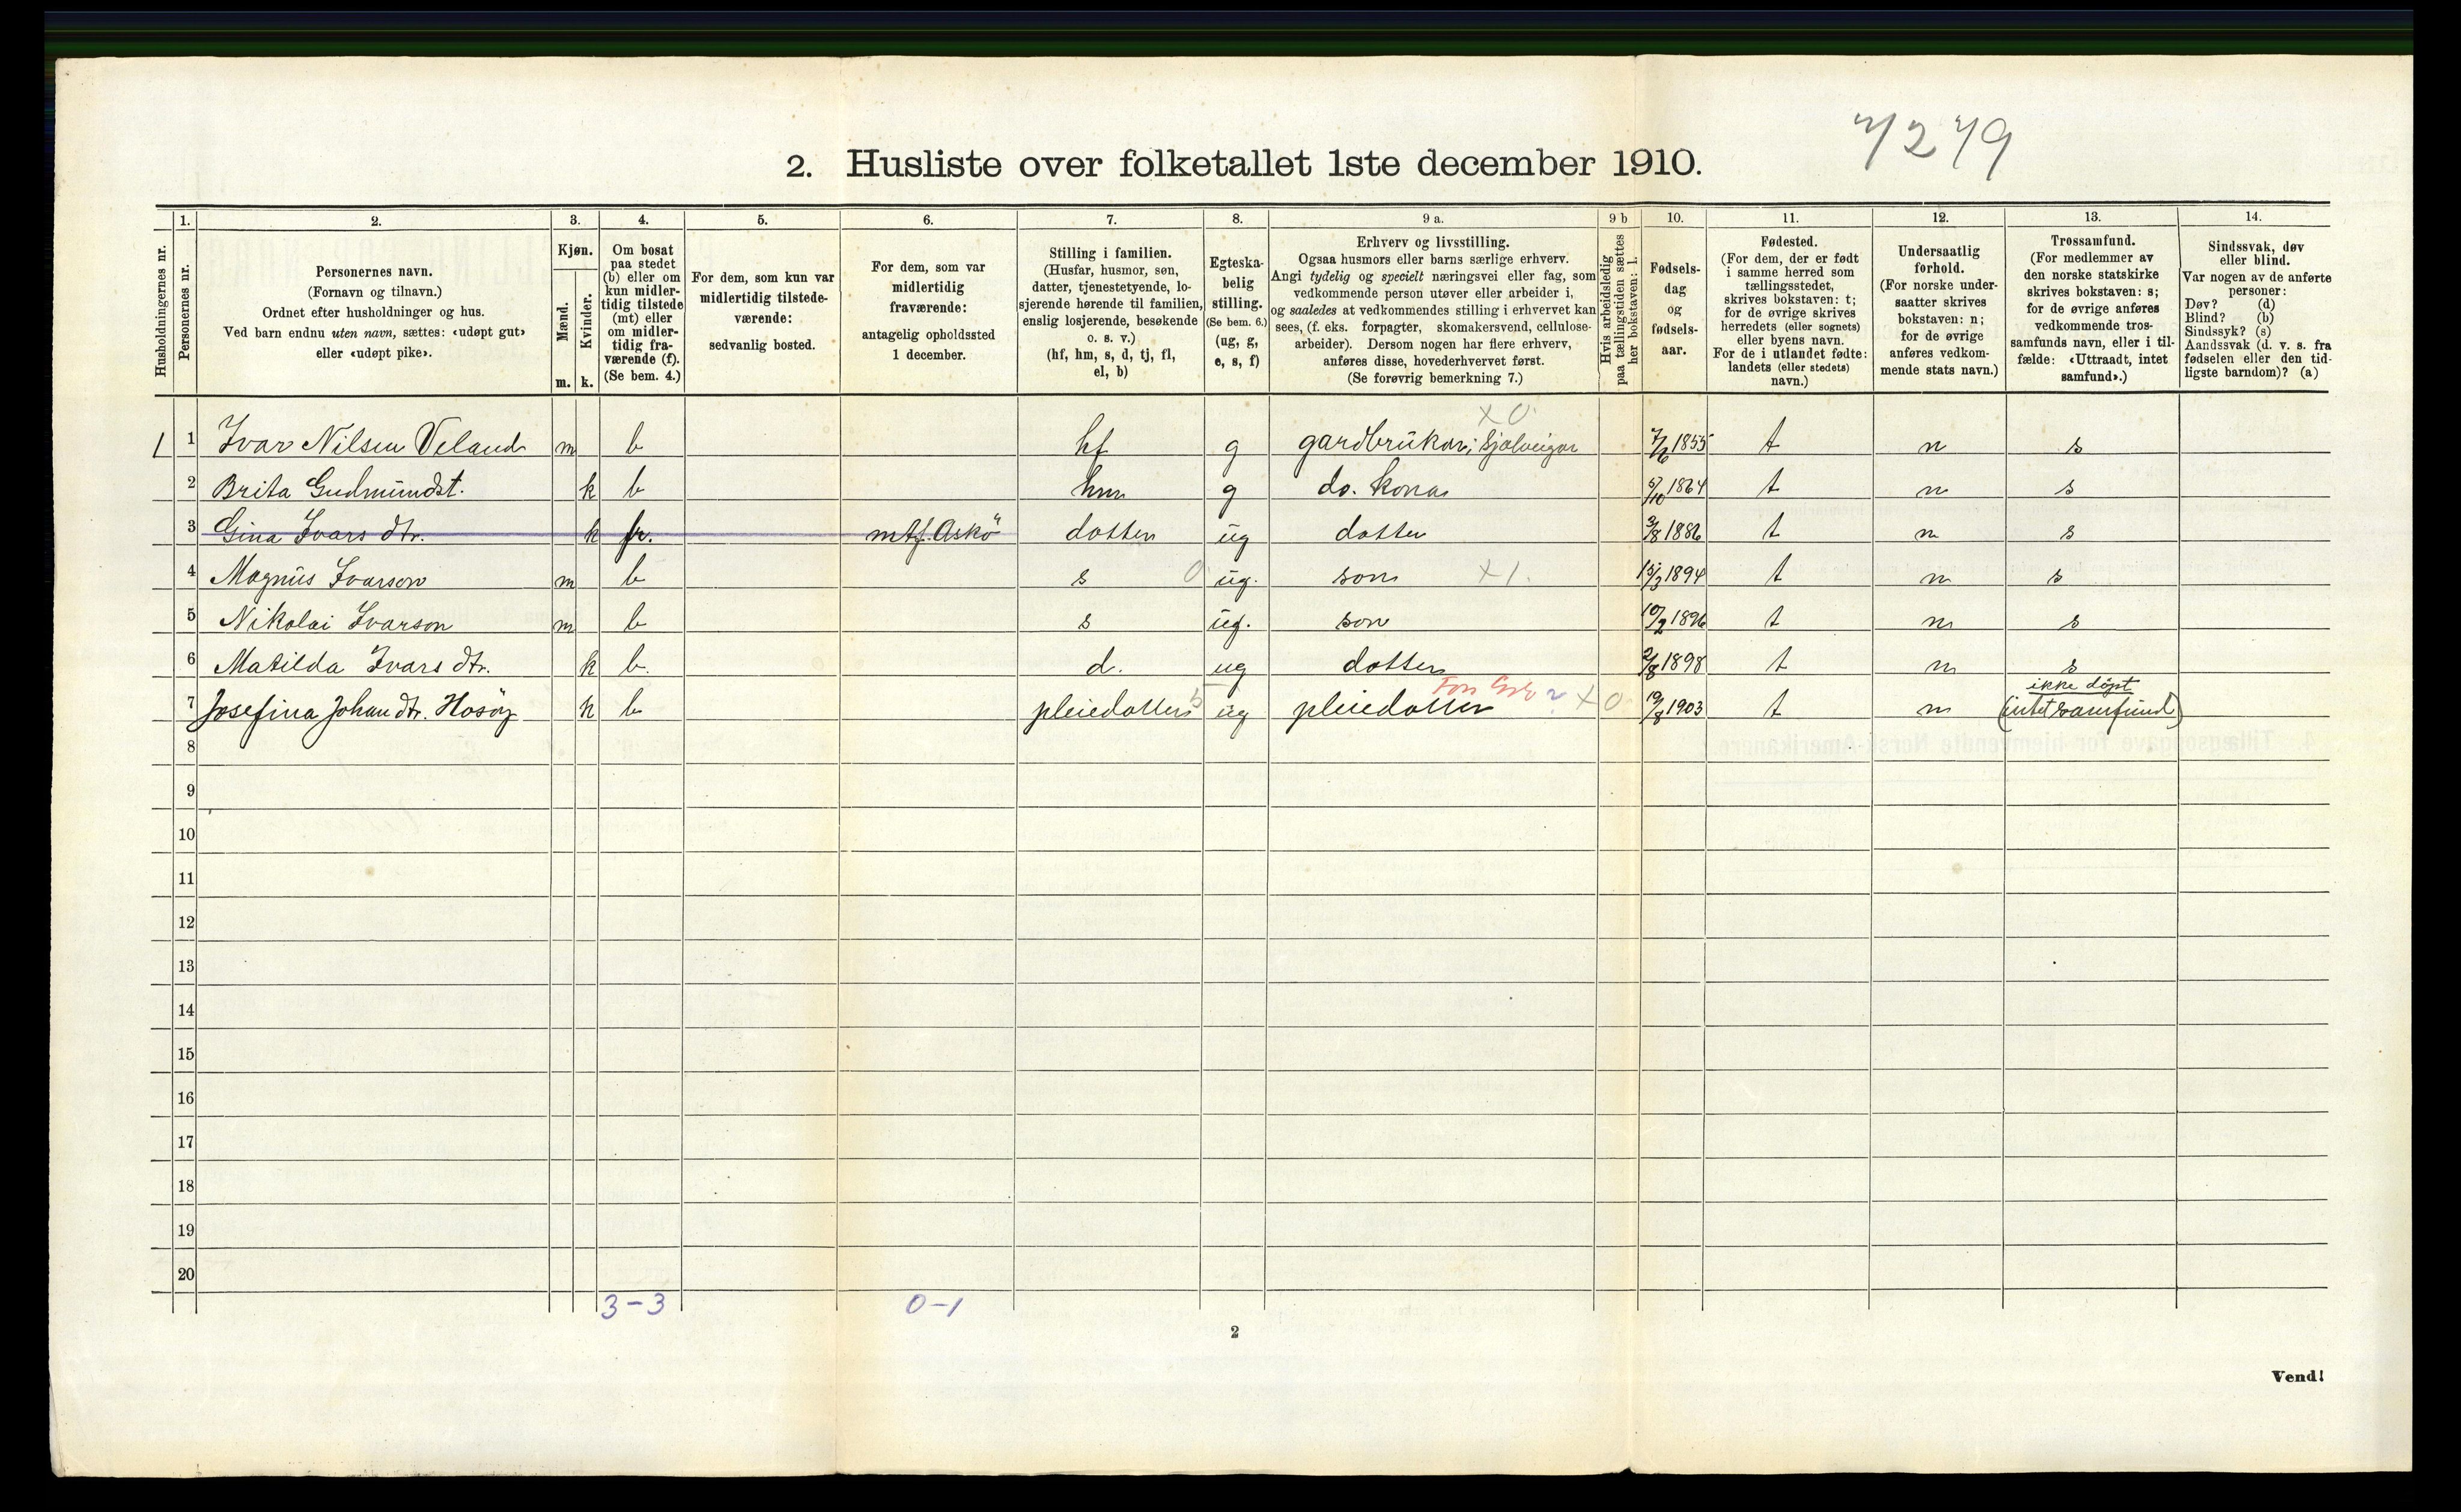 7279
2. Husliste over folketallet 1ste december 1910.
Husholdningernes nr.
1.
Personernes nr.
2.
Personernes navn.
(Fornavn og tilnavn.)
Ordnet efter husholdninger og hus.
Ved barn endnu uten navn, sættes: «udøpt gut»
eller «udøpt pike».
3.
Kjøn.
Mænd.
Kvinder.
m. k.
4.
Om bosat
paa stedet
(b) eller om
kun midler-
tidig tilstede
(mt) eller
om midler-
tidig fra-
værende (f).
(Se bem. 4.)
5.
For dem, som kun var
midlertidig tilstede-
værende:
sedvanlig bosted.
6.
For dem, som var
midlertidig
fraværende:
antagelig opholdssted
1 december.
7.
Stilling i familien.
(Husfar, husmor, søn,
datter, tjenestetyende, lo-
sjerende hørende til familien,
enslig losjerende, besøkende
o. s. v.)
(hf, hm, s, d, tj, fl,
el, b)
8.
Egteska-
belig
stilling.
(Se bem. 6.)
(ug, g,
e, s, f)
9 a.
Erhverv og livsstilling.
Ogsaa husmors eller barns særlige erhverv.
Angi tydelig og specielt næringsvei eller fag, som
vedkommende person utøver eller arbeider i,
og saaledes at vedkommendes stilling i erhvervet kan
sees, (f. eks. forpagter, skomakersvend, cellulose-
arbeider). Dersom nogen har flere erhverv,
anføres disse, hovederhvervet først.
(Se forøvrig bemerkning 7.)
9 b
Hvis arbeidsledig
paa tællingstiden sættes
her bokstaven: l.
10.
Fødsels-
dag
og
fødsels-
aar.
11.
Fødested.
(For dem, der er født
i samme herred som
tællingsstedet,
skrives bokstaven: t;
for de øvrige skrives
herredets (eller sognets)
eller byens navn.
For de i utlandet fødte:
landets (eller stedets)
navn.)
12.
Undersaatlig
forhold.
(For norske under-
saatter skrives
bokstaven: n;
for de øvrige
anføres vedkom-
mende stats navn.)
13.
Trossamfund.
(For medlemmer av
den norske statskirke
skrives bokstaven: s;
for de øvrige anføres
vedkommende tros-
samfunds navn, eller i til-
fælde: «Uttraadt, intet
samfund».)
14.
Sindssvak, døv
eller blind.
Var nogen av de anførte
personer:
Døv? (d)
Blind? (b)
Sindssyk? (s)
Aandssvak (d. v. s. fra
fødselen eller den tid-
ligste barndom)? (a)
x 0
1 1 Ivar Nilsen Veland m b hf g gardbrükar; Sjølveigar 7/6 1855 t n s
2 Brita Gudmündst. k b hm g do. kona 5/10 1864 t n s
3 Gina Ivars dtr. k fr. mtf. Askö dotter üg dotter 3/8 1886 t n s
4 Magnüs Ivarson m b s 0 üg. son x 1. 15/3 1894 t n s
5 Nikolai Ivarson m b s üg. son 10/2 1896 t n s
6 Matilda Ivars dtr. k b. d. ug dotter 2/8 1898 t n s
ikke döpt
7 Josefina Johan dtr. Hosöy k b pleiedotter 5 üg pleiedotter ? x 0 19/8 1903 t n (intet samfund)
8
9
10
11
12
13
14
15
16
17
18
19
20
3-3 0-1
2
Vend!